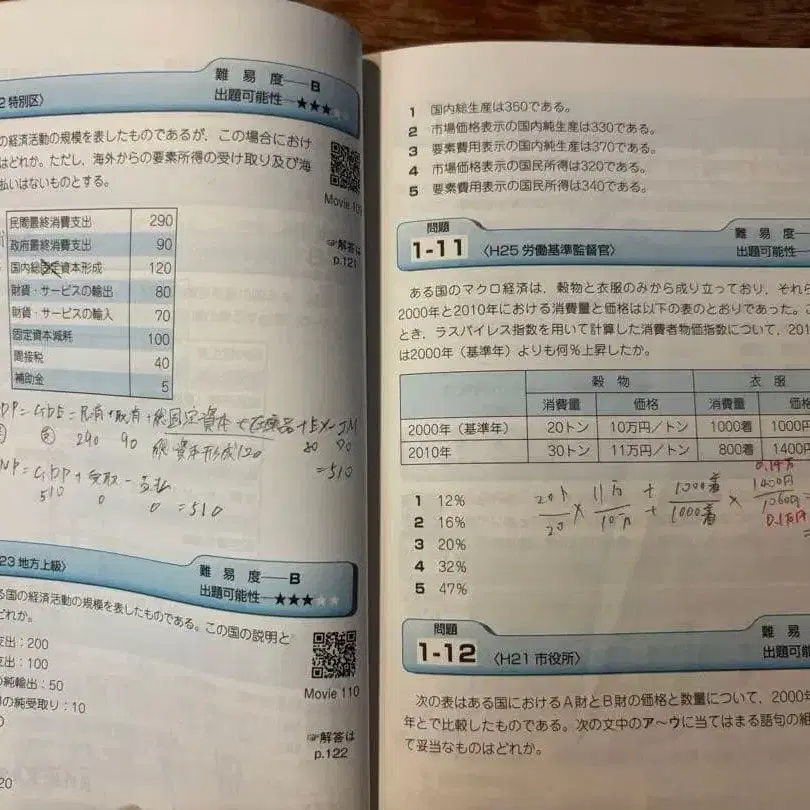 2 特別区〉
難 易 度──B
出題可能性─★★★
の経済活動の規模を表したものであるが、この場合におけ
はどれか。ただし、海外からの要素所得の受け取り及び海
払いはないものとする。
Movie 109
☞解答は
p.121
民間最終消費支出 290
政府最終消費支出 90
国内総固定資本形成 120
財貨・サービスの輸出 80
財貨・サービスの輸入 70
固定資本減耗 100
間接税 40
補助金 5
DP=GDE=民有+政有+総固定資本+在庫品+EX-IM
290 90 総資本形成120 80 70
=510
NP=GDP+受取-支払
510 0 0 =510
23 地方上級〉
難 易 度──B
出題可能性─★★★★★
る国の経済活動の規模を表したものである。この国の説明と
どれか。
支出:200
支出:100
の純輸出:50
の純受取り:10
Movie 110
☞解答は
p.122
20
1 国内総生産は350である。
2 市場価格表示の国内純生産は330である。
3 要素費用表示の国内純生産は370である。
4 市場価格表示の国民所得は320である。
5 要素費用表示の国民所得は340である。
問題
1-11 〈H25 労働基準監督官〉
難 易 度─
出題可能性─
ある国のマクロ経済は、穀物と衣服のみから成り立っており、それら
2000年と2010年における消費量と価格は以下の表のとおりであった。こ
とき、ラスパイレス指数を用いて計算した消費者物価指数について、201
は2000年(基準年)よりも何%上昇したか。
穀 物 衣 服
消費量 価格 消費量 価格
2000年(基準年) 20トン 10万円/トン 1000着 1000円
2010年 30トン 11万円/トン 800着 1400円
0.14万
20ト/20 × 11万/10万 + 1000着/1000着 × 1400円
0.1万円
1 12%
2 16%
3 20%
4 32%
5 47%
問題
1-12 〈H21 市役所〉
難 易
出題可能
次の表はある国におけるA財とB財の価格と数量について、2000年
年とで比較したものである。次の文中のア〜ウに当てはまる語句の組
て妥当なものはどれか。